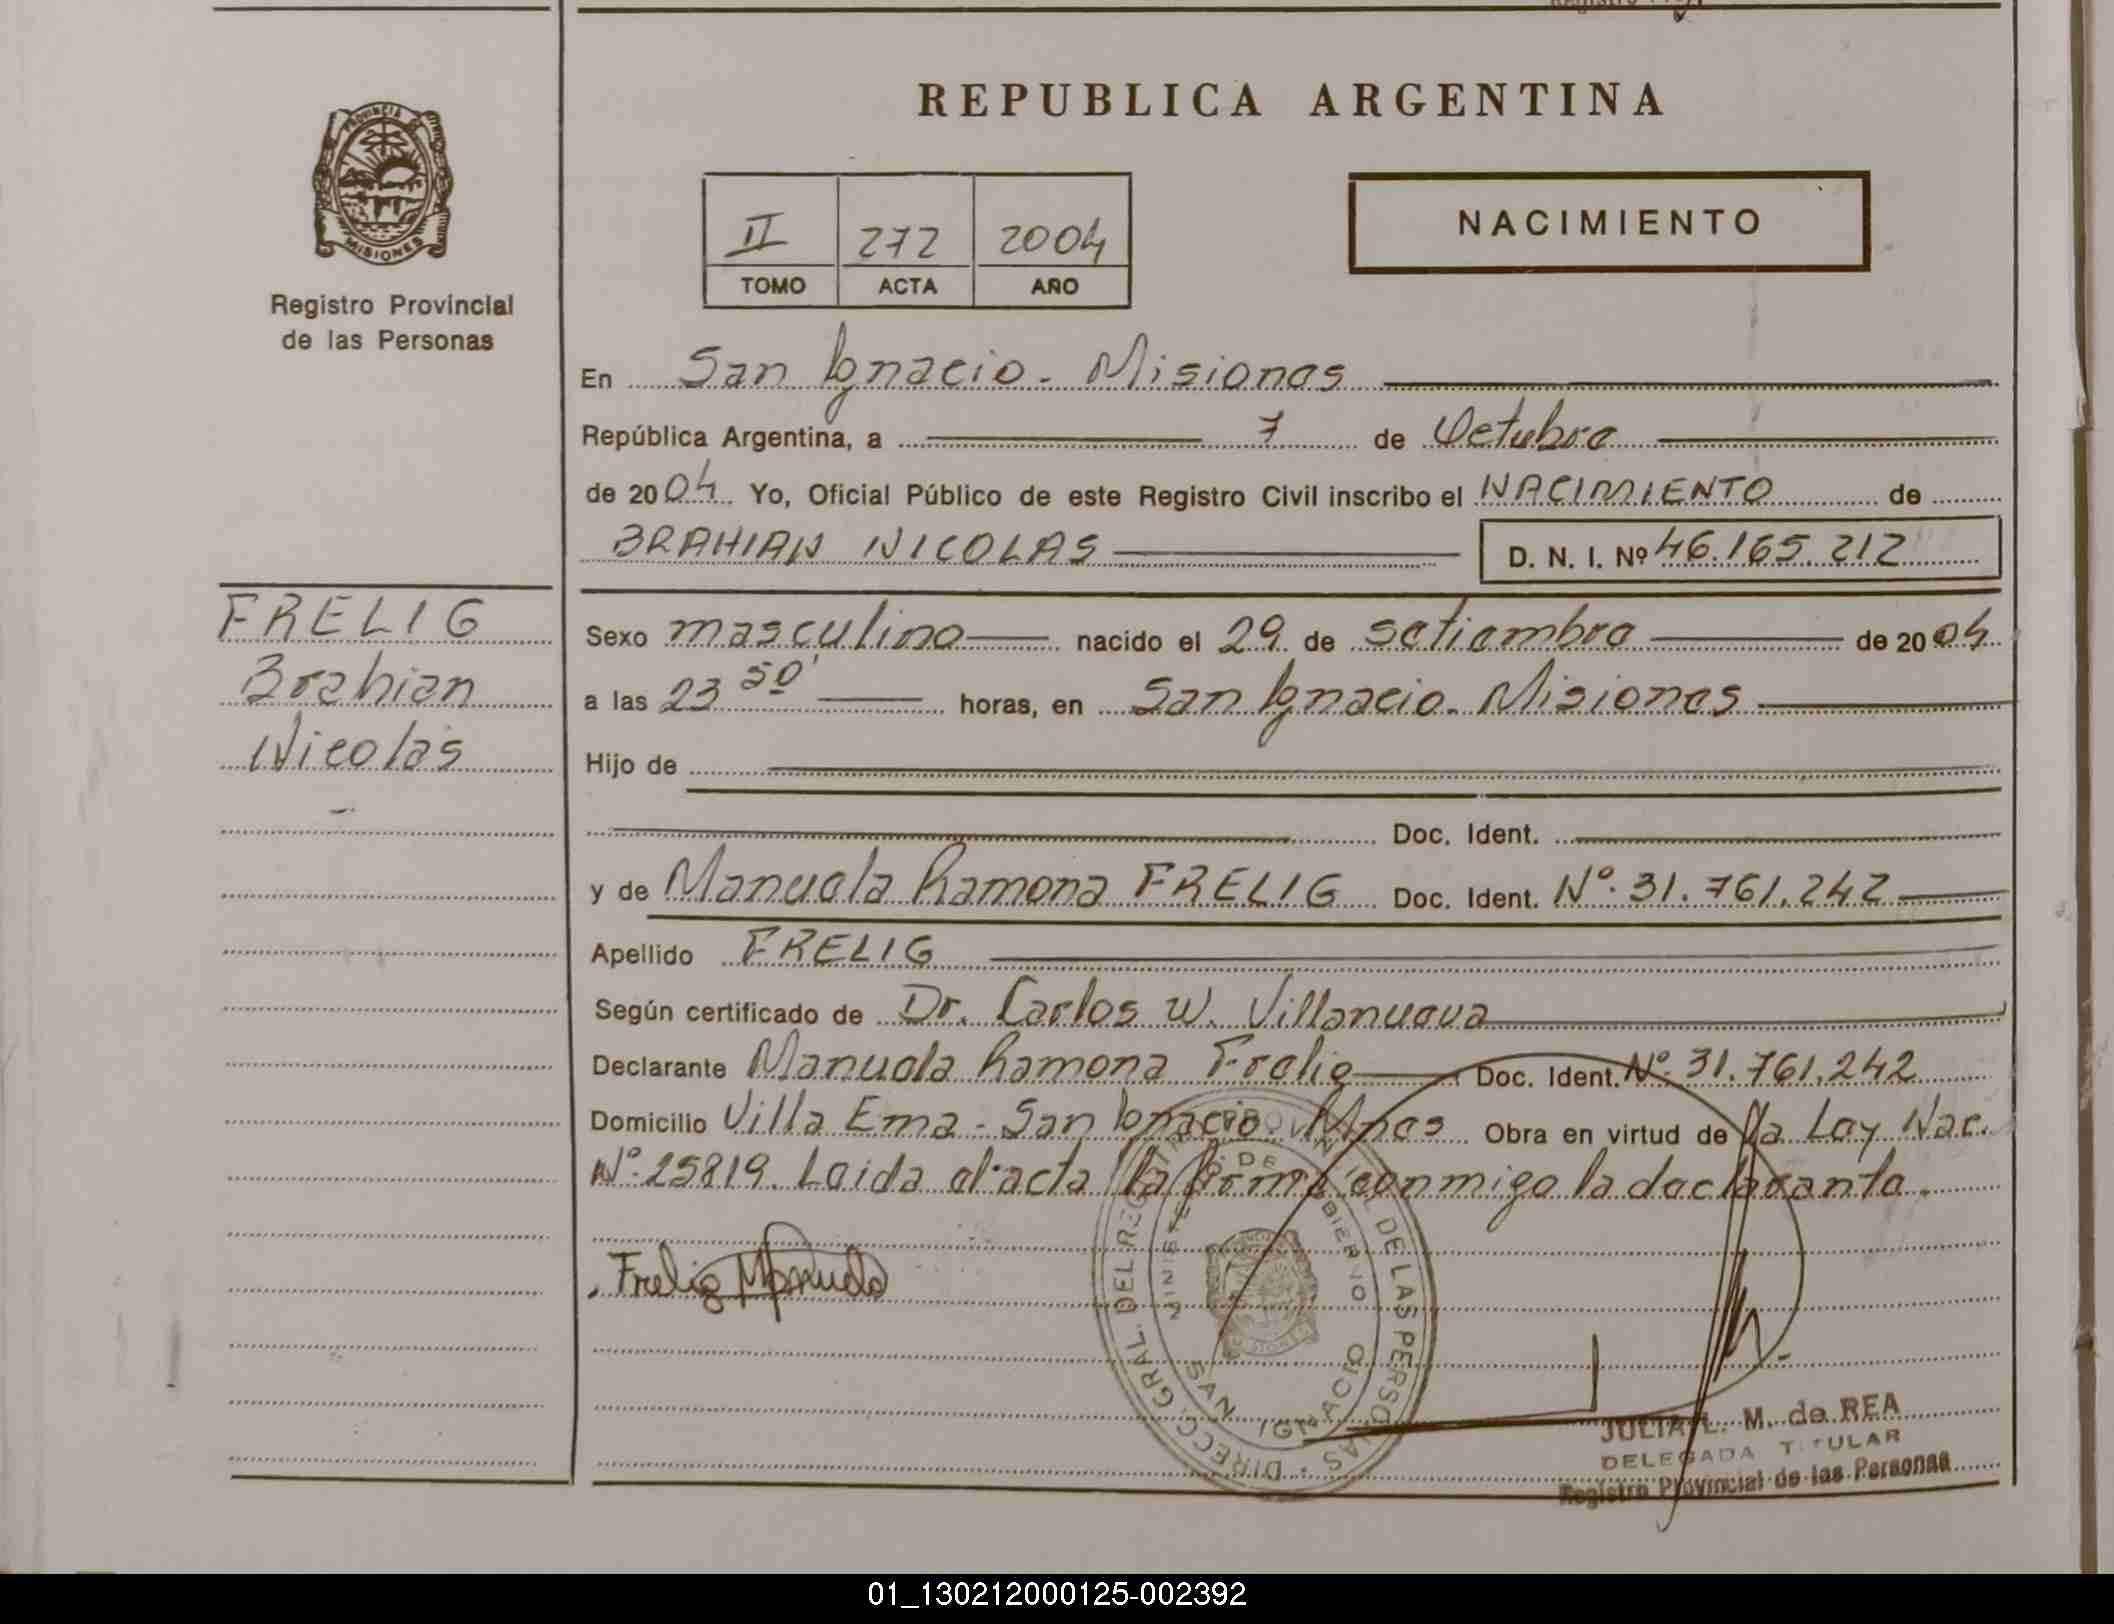 REPUBLICA ARGENTINA
PROVINCIA DE
MISIONES
Registro Provincial
de las Personas
II 272 2004
TOMO ACTA AÑO
NACIMIENTO
En San Ignacio - Misiones
República Argentina, a 7 de Octubre
de 2004 Yo, Oficial Público de este Registro Civil inscribo el NACIMIENTO de
BRAHIAN NICOLAS D. N. I. Nº 46.165.212
FRELIG
Brahian
Nicolás
Sexo masculino nacido el 29 de setiembre de 2004
a las 23 50' horas, en San Ignacio - Misiones
Hijo de
Doc. Ident.
y de Manuela Ramona FRELIG Doc. Ident. Nº. 31.761.242
Apellido FRELIG
Según certificado de Dr. Carlos W. Villanueva
Declarante Manuela Ramona Frelig Doc. Ident. Nº. 31.761.242
Domicilio Villa Ema - San Ignacio Mnes Obra en virtud de la Ley Nac.
Nº. 25819. Leida el acta la firma conmigo la declarante.
Frelig Manuela
DIRECC. GRAL. DEL REGISTRO PROVINCIAL DE LAS PERSONAS
MINISTERIO DE GOBIERNO
SAN IGNACIO
JULIA L. M. de REA
DELEGADA TITULAR
Registro Provincial de las Personas
01_130212000125-002392